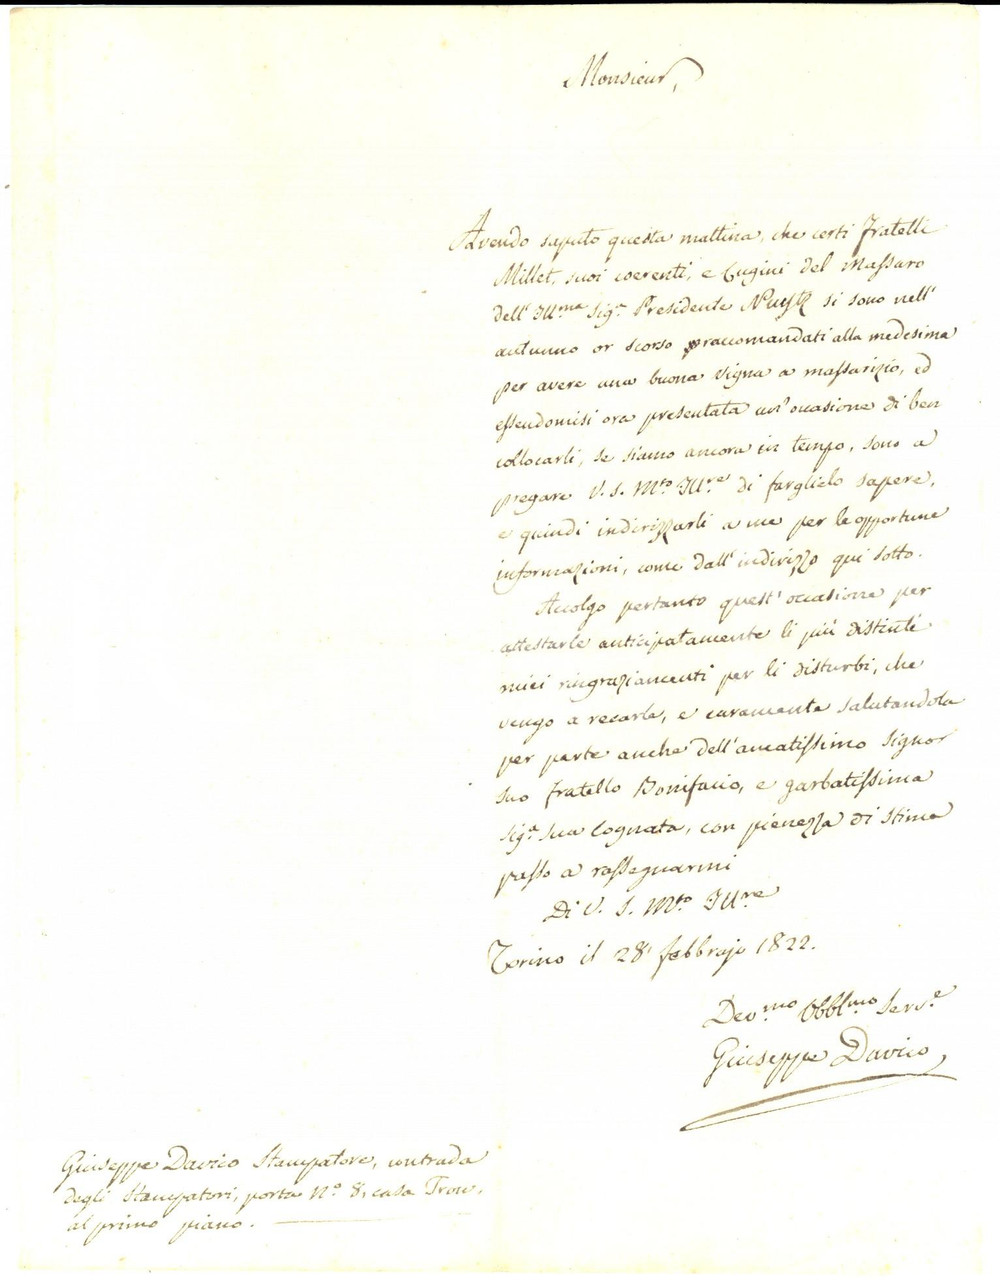 Monsieur,
Avendo saputo questa mattina, che certi Fratelli
Millet, suoi coerenti, e Cugini del Massaro
dell' Ill.ma Sig.a Presidente si sono nell'
autunno or scorso raccomandati alla medesima
per avere una buona vigna a massarizio, ed
essendomisi ora presentata un' occasione di ben
collocarli, se siamo ancora in tempo, sono a
pregare V. S. M.to Ill.re di farglielo sapere,
e quindi indirizzarli a me per le opportune
informazioni, come dall' indirizzo qui sotto.
Accolgo pertanto quest' occasione per
attestarle anticipatamente li più distinti
miei ringraziamenti per li disturbi, che
vengo a recarle, e caramente salutandola
per parte anche dell' amatissimo Signor
suo fratello Bonifacio, e garbatissima
Sig.a sua Cognata, con pienezza di stima
passo a rassegnarmi
Di V. S. M.to Ill.re
Torino il 28 febbrajo 1822.
Dev.mo Obbl.mo Serv.e
Giuseppe Davico
Giuseppe Davico Stampatore, contrada
degli Stampatori, porta N.o 8, casa Tron,
al primo piano.